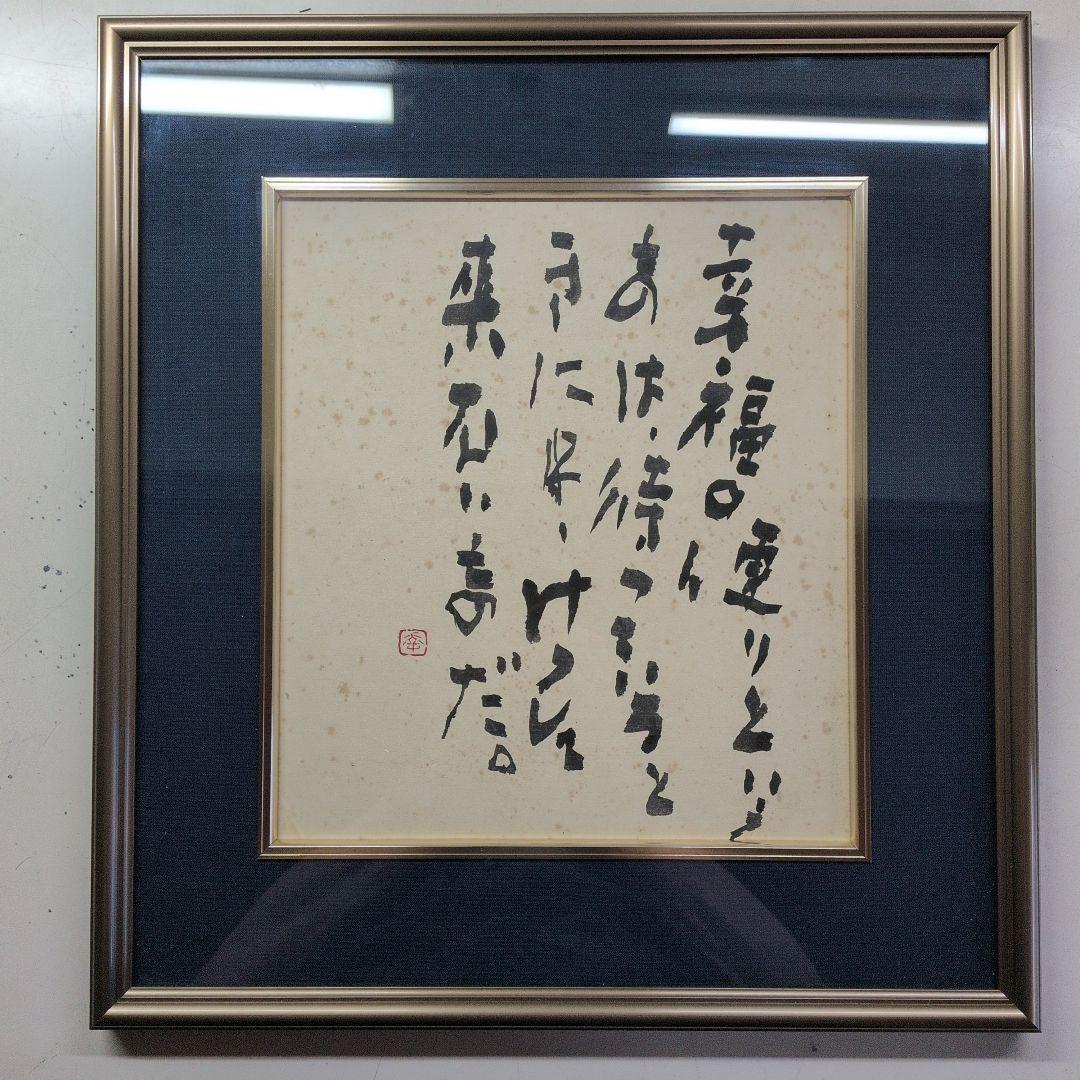 幸福の便りという
ものは、待っていると
きには、けっして
来ないものだ。